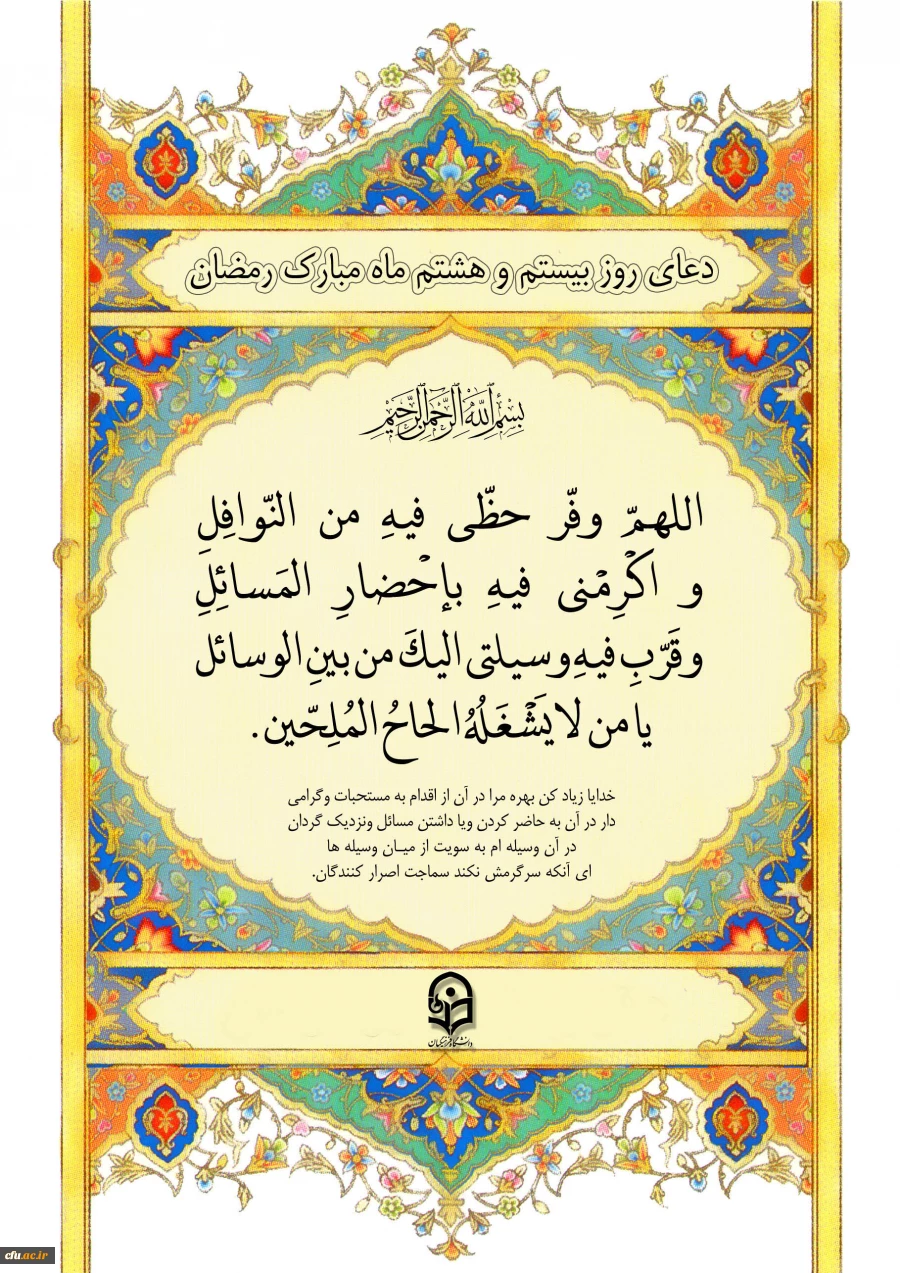 دعای روز بیستم و هشتم ماه مبارک رمضان
بِسْمِ ٱللَّهِ ٱلرَّحْمَنِ ٱلرَّحِيْمِ
اللهمّ وفّر حظّی فیهِ من النّوافِلِ
و اکْرِمْنی فیهِ بإحْضارِ المَسائِلِ
وقَرّبِ فیهِ وسیلتی الیكَ من بینِ الوسائل
یا من لا یَشْغَلُهُ الحاحُ المُلِحّین.
خدایا زیاد کن بهره مرا در آن از اقدام به مستحبات وگرامی
دار در آن به حاضر کردن ویا داشتن مسائل ونزدیک گردان
در آن وسیله ام به سویت از میـان وسیله ها
ای آنکه سرگرمش نکند سماجت اصرار کنندگان.
دانشگاه فرهنگیان
cfu.ac.ir